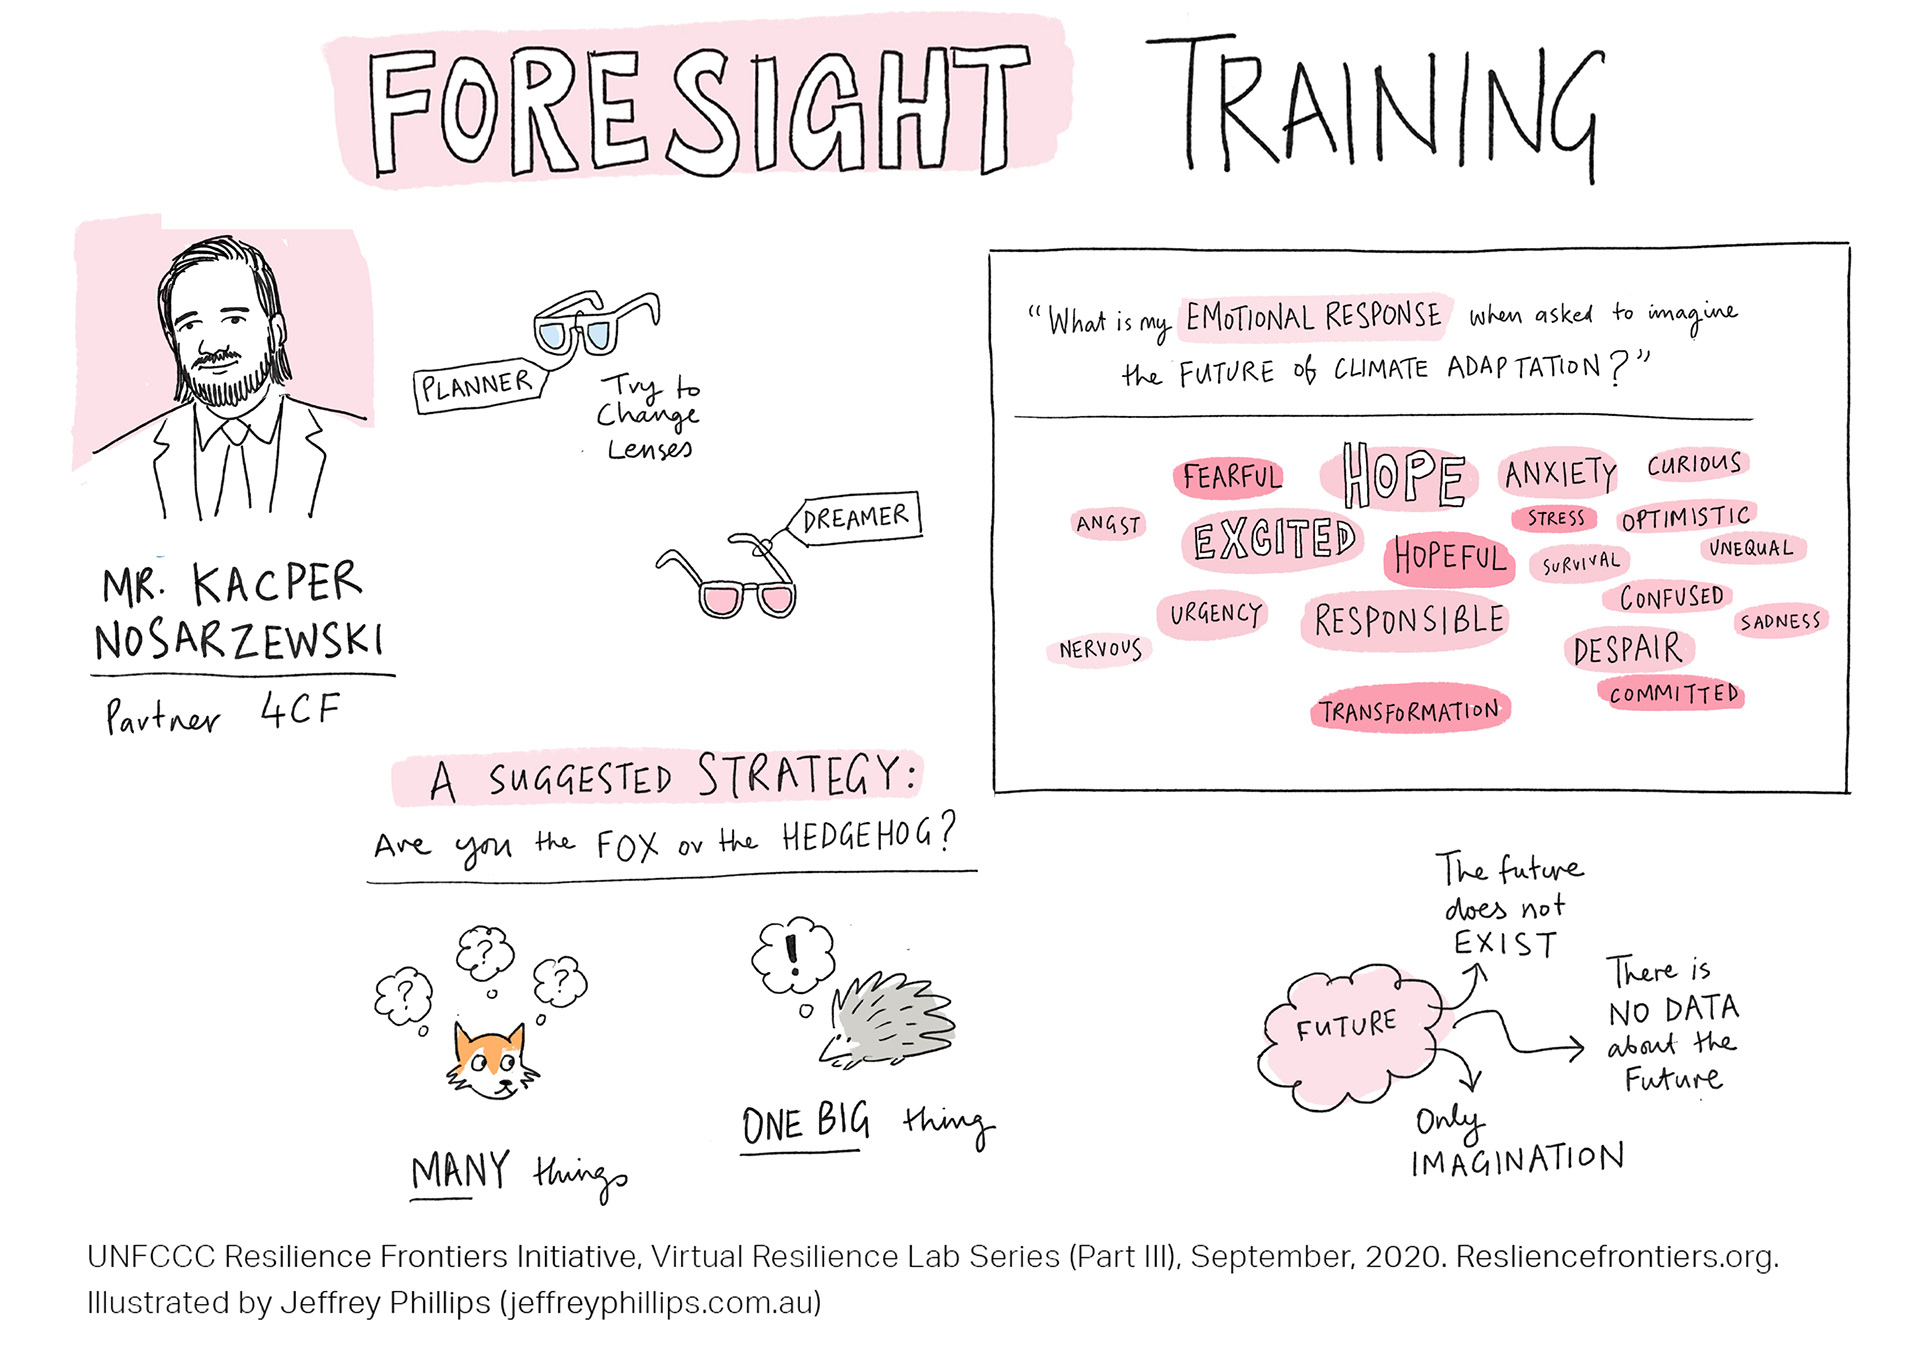 FORESIGHT TRAINING
MR. KACPER
NOSARZEWSKI
Partner 4CF
PLANNER
Try to
Change
Lenses
DREAMER
"What is my EMOTIONAL RESPONSE when asked to imagine
the FUTURE of CLIMATE ADAPTATION?"
FEARFUL
HOPE
ANXIETY
CURIOUS
ANGST
EXCITED
STRESS
OPTIMISTIC
HOPEFUL
SURVIVAL
UNEQUAL
URGENCY
RESPONSIBLE
CONFUSED
SADNESS
NERVOUS
DESPAIR
COMMITTED
TRANSFORMATION
A SUGGESTED STRATEGY:
Are you the FOX or the HEDGEHOG?
?
?
?
!
MANY things
ONE BIG thing
FUTURE
The future
does not
EXIST
There is
NO DATA
about the
Future
Only
IMAGINATION
UNFCCC Resilience Frontiers Initiative, Virtual Resilience Lab Series (Part III), September, 2020. Resliencefrontiers.org.
Illustrated by Jeffrey Phillips (jeffreyphillips.com.au)